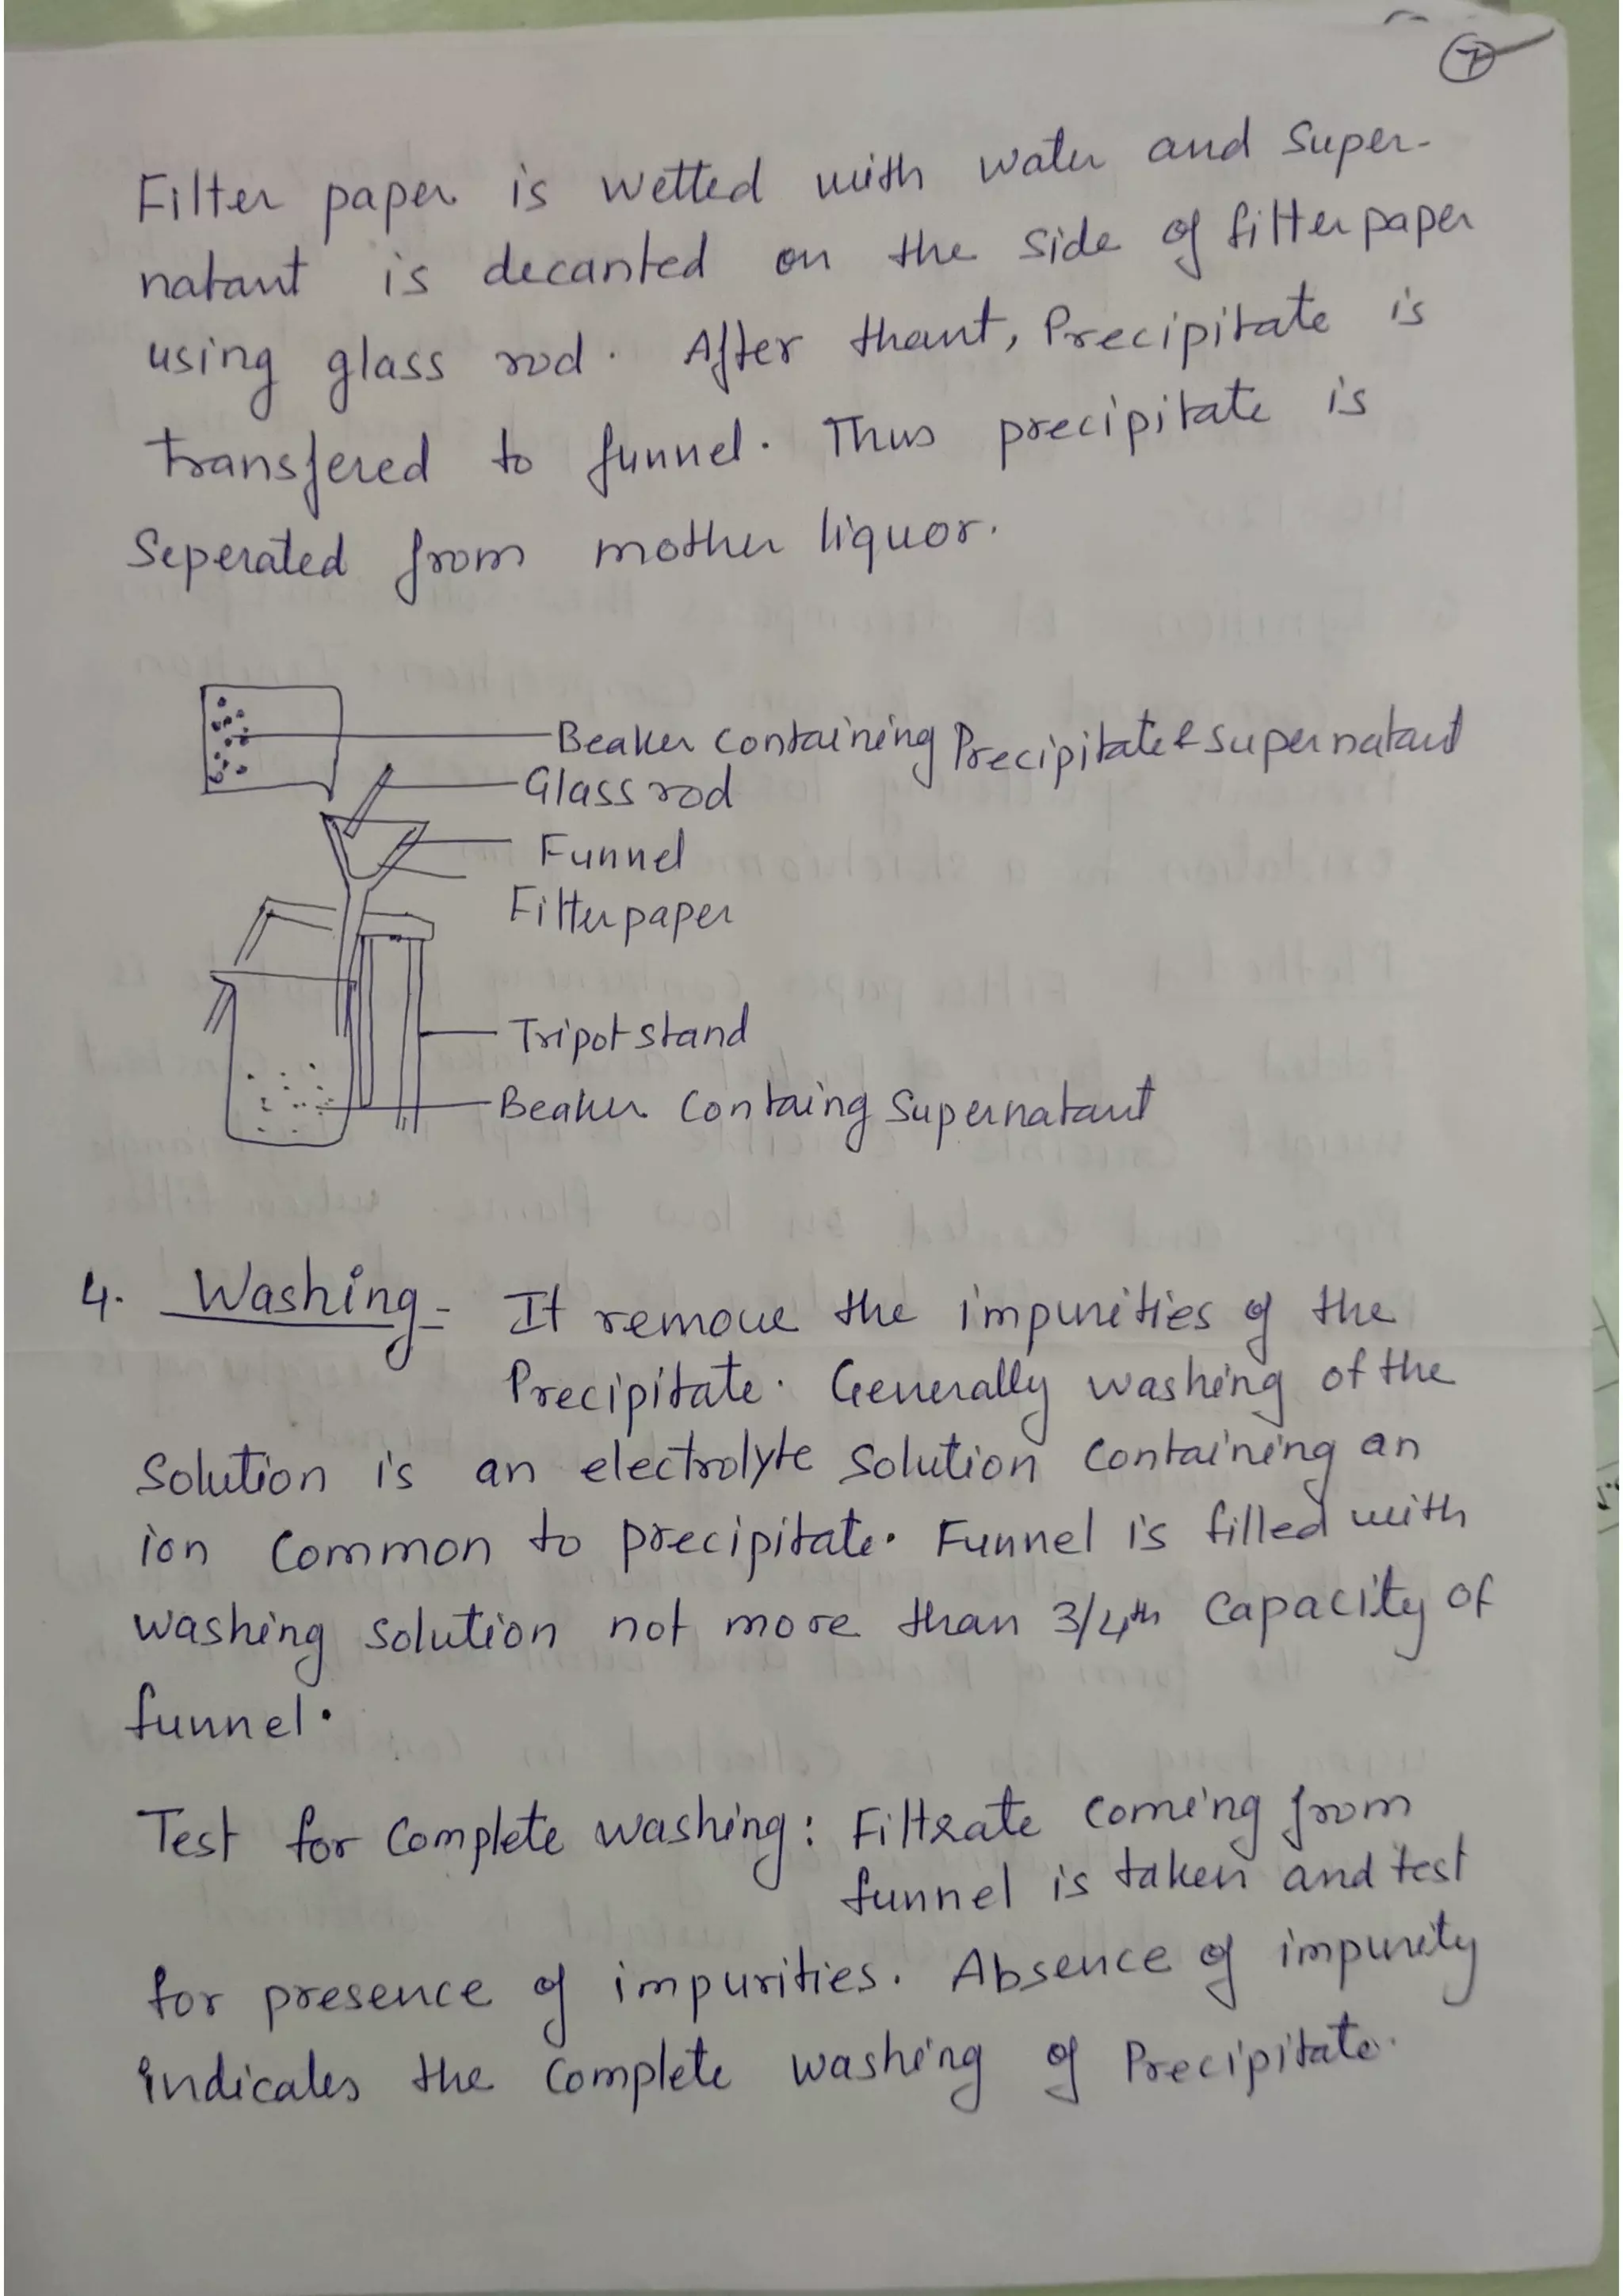 7
Filter paper is wetted with water and super-
natant is decanted on the side of filter paper
using glass rod. After thant, Precipitate is
transfered to funnel. Thus precipitate is
Seperated from mother liquor.
Beaker containing Precipitate & supernatant
Glass rod
Funnel
Filter paper
Tripot stand
Beaker Containg Supernatant
4. Washing- It remove the impurities of the
Precipitate. Generally washing of the
Solution is an electrolyte Solution Containing an
ion Common to precipitate. Funnel is filled with
washing solution not more than 3/4th Capacity of
funnel.
Test for Complete washing: Filtrate coming from
funnel is taken and test
for presence of impurities. Absence of impurity
indicates the Complete washing of Precipitate.